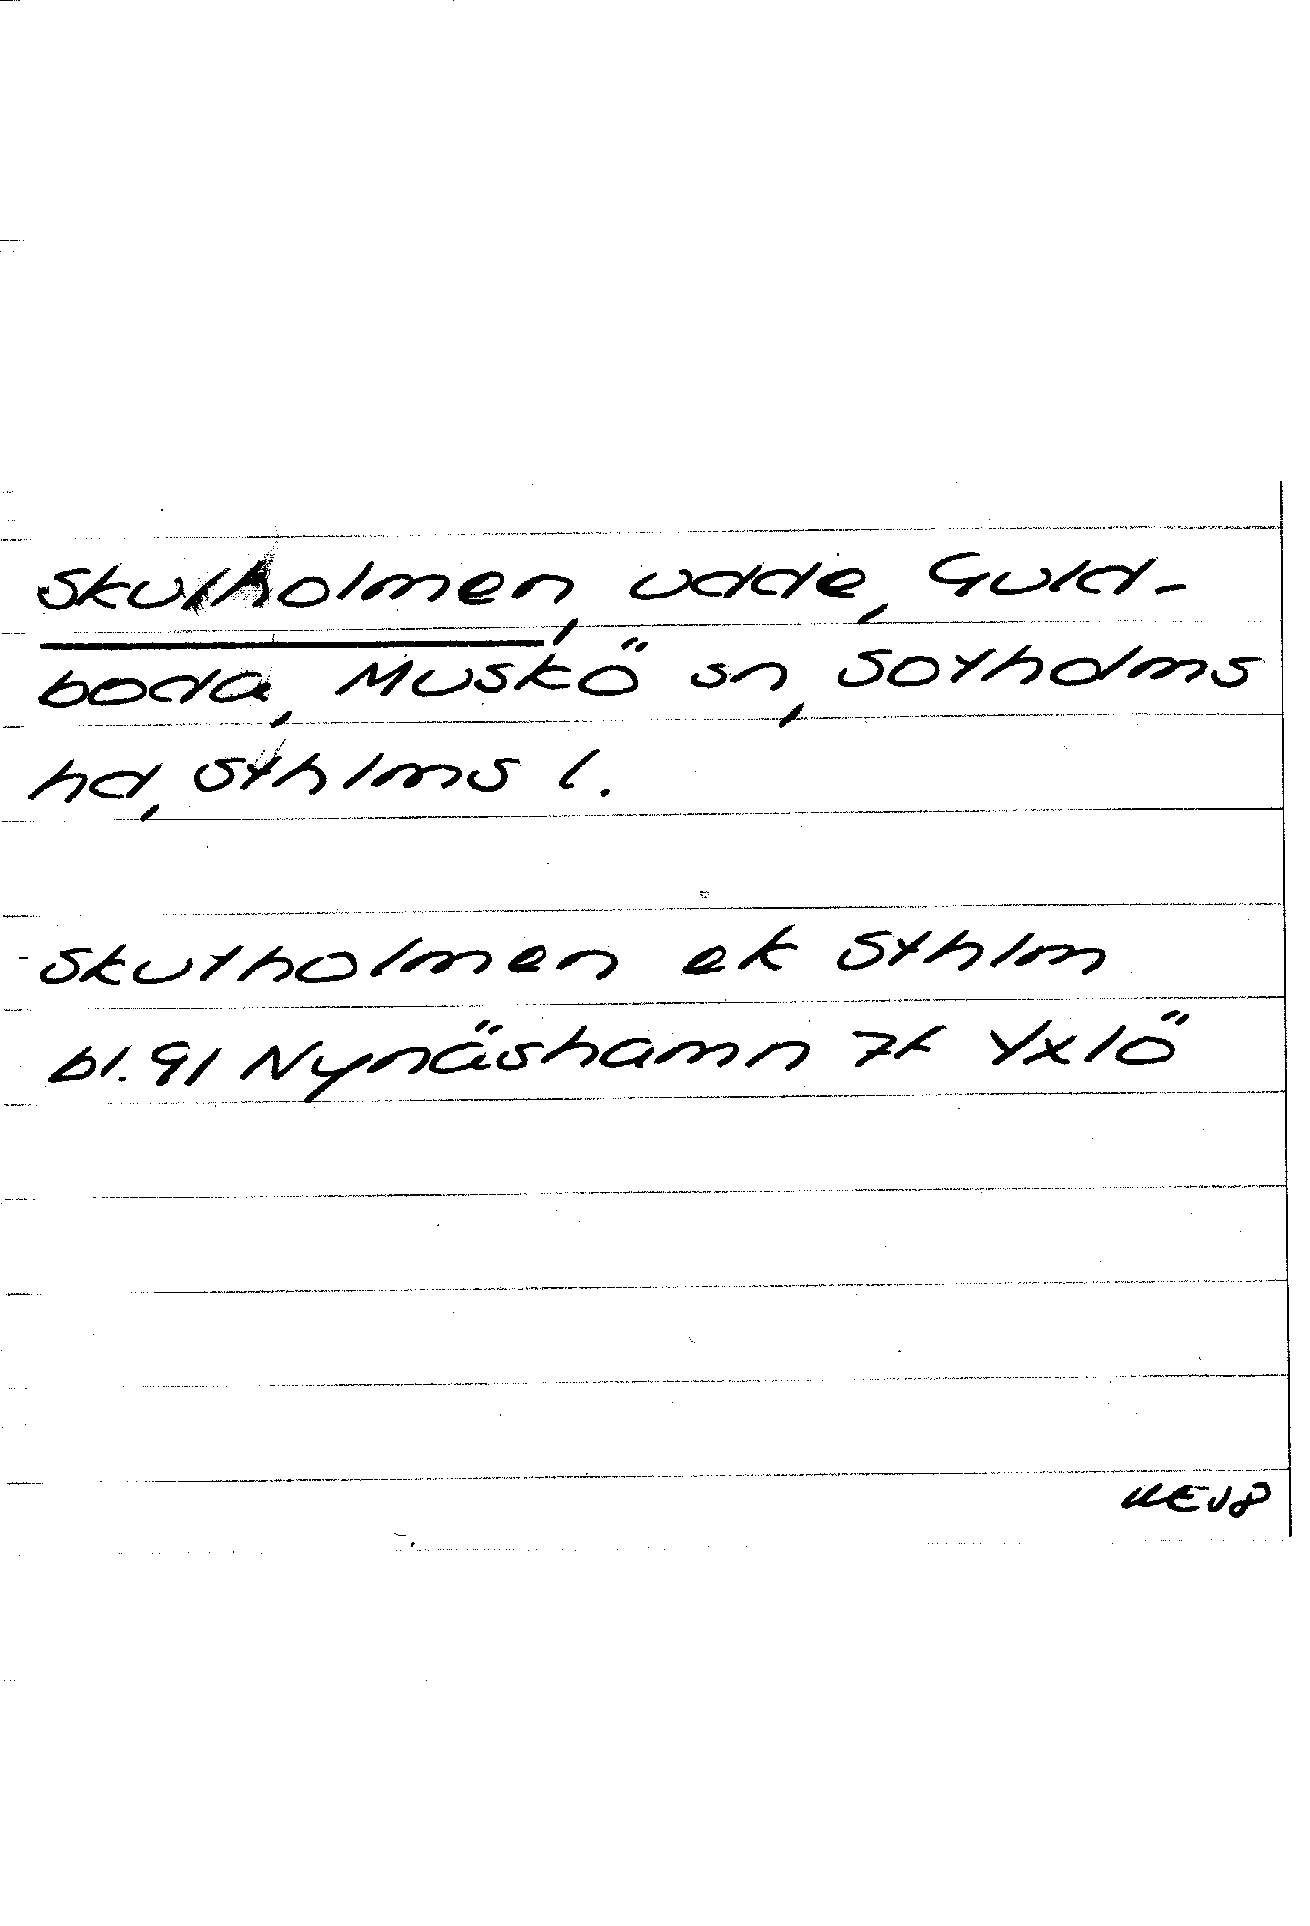 Skutholmen, udde, Guld-
boda, Muskö sn, Sotholms
hd, Sthlms l.
Skutholmen ek Sthlm
bl. 91 Nynäshamn 7f Yxlö